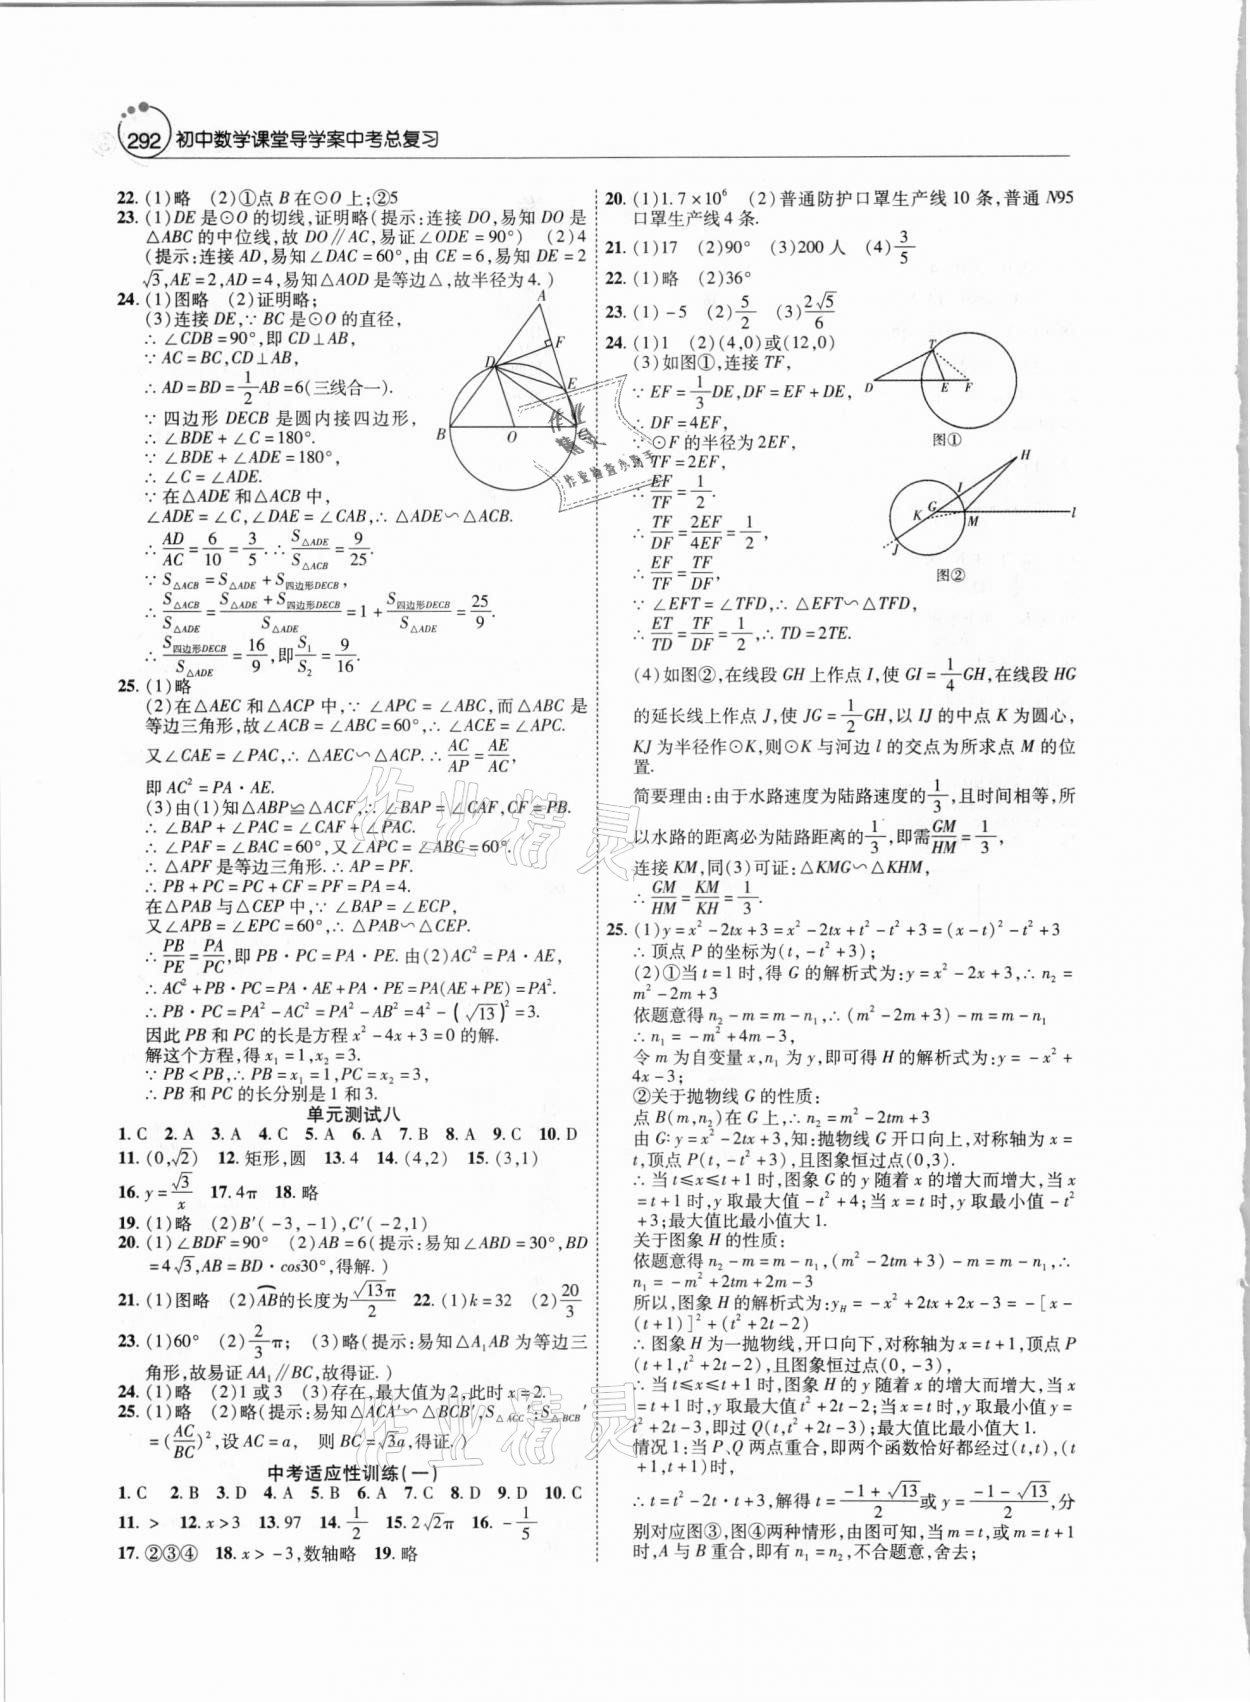 292 初中数学课堂导学案中考总复习
22. (1)略 (2)①点 B 在⊙O 上;②5
23. (1)DE 是⊙O 的切线,证明略(提示:连接 DO,易知 DO 是
△ABC 的中位线,故 DO∥AC,易证∠ODE=90°) (2)4
(提示:连接 AD,易知∠DAC=60°,由 CE=6,易知 DE=2
√3,AE=2,AD=4,易知△AOD 是等边△,故半径为 4.)
24. (1)图略 (2)证明略;
(3)连接 DE,∵ BC 是⊙O 的直径,
∴ ∠CDB=90°,即 CD⊥AB,
∵ AC=BC,CD⊥AB,
∴ AD=BD=1/2AB=6(三线合一).
∵ 四边形 DECB 是圆内接四边形,
∴ ∠BDE+∠C=180°.
∵ ∠BDE+∠ADE=180°,
∴ ∠C=∠ADE.
∵ 在△ADE 和△ACB 中,
∠ADE=∠C,∠DAE=∠CAB,∴ △ADE∽△ACB.
∴ AD/AC=6/10=3/5.∴ S△ADE/S△ACB=9/25.
∵ S△ACB=S△ADE+S四边形DECB,
∴ S△ACB/S△ADE=(S△ADE+S四边形DECB)/S△ADE=1+S四边形DECB/S△ADE=25/9.
∴ S四边形DECB/S△ADE=16/9,即S₁/S₂=9/16.
25. (1)略
(2)在△AEC 和△ACP 中,∵ ∠APC=∠ABC,而△ABC 是
等边三角形,故∠ACB=∠ABC=60°,∴ ∠ACE=∠APC.
又∠CAE=∠PAC,∴ △AEC∽△ACP.∴ AC/AP=AE/AC,
即 AC²=PA·AE.
(3)由(1)知△ABP≌△ACF,∴ ∠BAP=∠CAF,CF=PB.
∴ ∠BAP+∠PAC=∠CAF+∠PAC.
∴ ∠PAF=∠BAC=60°,又∠APC=∠ABC=60°.
∴ △APF 是等边三角形.∴ AP=PF.
∴ PB+PC=PC+CF=PF=PA=4.
在△PAB 与△CEP 中,∵ ∠BAP=∠ECP,
又∠APB=∠EPC=60°,∴ △PAB∽△CEP.
∴ PB/PE=PA/PC,即 PB·PC=PA·PE.由(2)AC²=PA·AE,
∴ AC²+PB·PC=PA·AE+PA·PE=PA(AE+PE)=PA².
∴ PB·PC=PA²-AC²=PA²-AB²=4²-(√13)²=3.
因此 PB 和 PC 的长是方程 x²-4x+3=0 的解.
解这个方程,得 x₁=1,x₂=3.
∵ PB<PB,∴ PB=x₁=1,PC=x₂=3,
∴ PB 和 PC 的长分别是 1 和 3.
单元测试八
1. C 2. A 3. A 4. C 5. A 6. A 7. B 8. A 9. C 10. D
11. (0,√2) 12. 矩形,圆 13. 4 14. (4,2) 15. (3,1)
16. y=√3/x 17. 4π 18. 略
19. (1)略 (2)B′(-3,-1),C′(-2,1)
20. (1)∠BDF=90° (2)AB=6(提示:易知∠ABD=30°,BD
=4√3,AB=BD·cos30°,得解.)
21. (1)图略 (2)AB的长度为√13π/2 22. (1)k=32 (2)20/3
23. (1)60° (2)2/3π; (3)略(提示:易知△A₁AB 为等边三
角形,故易证 AA₁∥BC,故得证.)
24. (1)略 (2)1 或 3 (3)存在,最大值为 2,此时 x=2.
25. (1)略 (2)略(提示:易知△ACA′∽△BCB′,S△ACC′:S△BCB′
=(AC/BC)²,设 AC=a, 则 BC=√3a,得证.)
中考适应性训练(一)
1. C 2. B 3. D 4. A 5. B 6. A 7. C 8. D 9. D 10. C
11. > 12. x>3 13. 97 14. 1/2 15. 2√2π 16. -1/5
17. ②③④ 18. x>-3,数轴略 19. 略
20. (1)1.7×10⁶ (2)普通防护口罩生产线 10 条,普通 N95
口罩生产线 4 条.
21. (1)17 (2)90° (3)200 人 (4)3/5
22. (1)略 (2)36°
23. (1)-5 (2)5/2 (3)2√5/6
24. (1)1 (2)(4,0)或(12,0)
(3)如图①,连接 TF,
∵ EF=1/3DE,DF=EF+DE,
∴ DF=4EF,
∵ ⊙F 的半径为 2EF,
∴ TF=2EF,
∴ EF/TF=1/2.
∴ TF/DF=2EF/4EF=1/2,
∴ EF/TF=TF/DF,
∵ ∠EFT=∠TFD,∴ △EFT∽△TFD,
∴ ET/TD=TF/DF=1/2,∴ TD=2TE.
(4)如图②,在线段 GH 上作点 I,使 GI=1/4GH,在线段 HG
的延长线上作点 J,使 JG=1/2GH,以 IJ 的中点 K 为圆心,
KJ 为半径作⊙K,则⊙K 与河边 l 的交点为所求点 M 的位
置.
简要理由:由于水路速度为陆路速度的1/3,且时间相等,所
以水路的距离必为陆路距离的1/3,即需GM/HM=1/3,
连接 KM,同(3)可证:△KMG∽△KHM,
∴ GM/HM=KM/KH=1/3.
25. (1)y=x²-2tx+3=x²-2tx+t²-t²+3=(x-t)²-t²+3
∴ 顶点 P 的坐标为(t,-t²+3);
(2)①当 t=1 时,得 G 的解析式为:y=x²-2x+3,∴ n₂=
m²-2m+3
依题意得 n₂-m=m-n₁,∴ (m²-2m+3)-m=m-n₁
∴ n₁=-m²+4m-3,
令 m 为自变量 x,n₁ 为 y,即可得 H 的解析式为:y=-x²+
4x-3;
②关于抛物线 G 的性质:
点 B(m,n₂)在 G 上,∴ n₂=m²-2tm+3
由 G:y=x²-2tx+3,知:抛物线 G 开口向上,对称轴为 x=
t,顶点 P(t,-t²+3),且图象恒过点(0,3).
∴ 当 t≤x≤t+1 时,图象 G 的 y 随着 x 的增大而增大,当 x
=t+1 时,y 取最大值-t²+4;当 x=t 时,y 取最小值-t²
+3;最大值比最小值大 1.
关于图象 H 的性质:
依题意得 n₂-m=m-n₁,(m²-2tm+3)-m=m-n₁,∴
n₁=-m²+2tm+2m-3
所以,图象 H 的解析式为:y_H=-x²+2tx+2x-3=-[x-
(t+1)]²+(t²+2t-2)
∴ 图象 H 为一抛物线,开口向下,对称轴为 x=t+1,顶点 P
(t+1,t²+2t-2),且图象恒过点(0,-3),
∴ 当 t≤x≤t+1 时,图象 H 的 y 随着 x 的增大而增大,当 x
=t+1 时,y 取最大值 t²+2t-2;当 x=t 时,y 取最小值 t²
+2t-3,即过 Q(t,t²+2t-3);最大值比最小值大 1.
情况 1:当 P、Q 两点重合,即两个函数恰好都经过(t,t),(t
+1,t+1)时,
∴ t=t²-2t·t+3,解得 t=(-1+√13)/2或 y=(-1-√13)/2,分
别对应图③,图④两种情形,由图可知,当 m=t,或 m=t+1
时,A 与 B 重合,即有 n₁=n₂,不合题意,舍去;
A
D
F
E
B
O
T
D
E
F
图①
H
I
G
K
M
l
J
图②
作业精灵
作业检查小助手
作业精灵
作业精灵